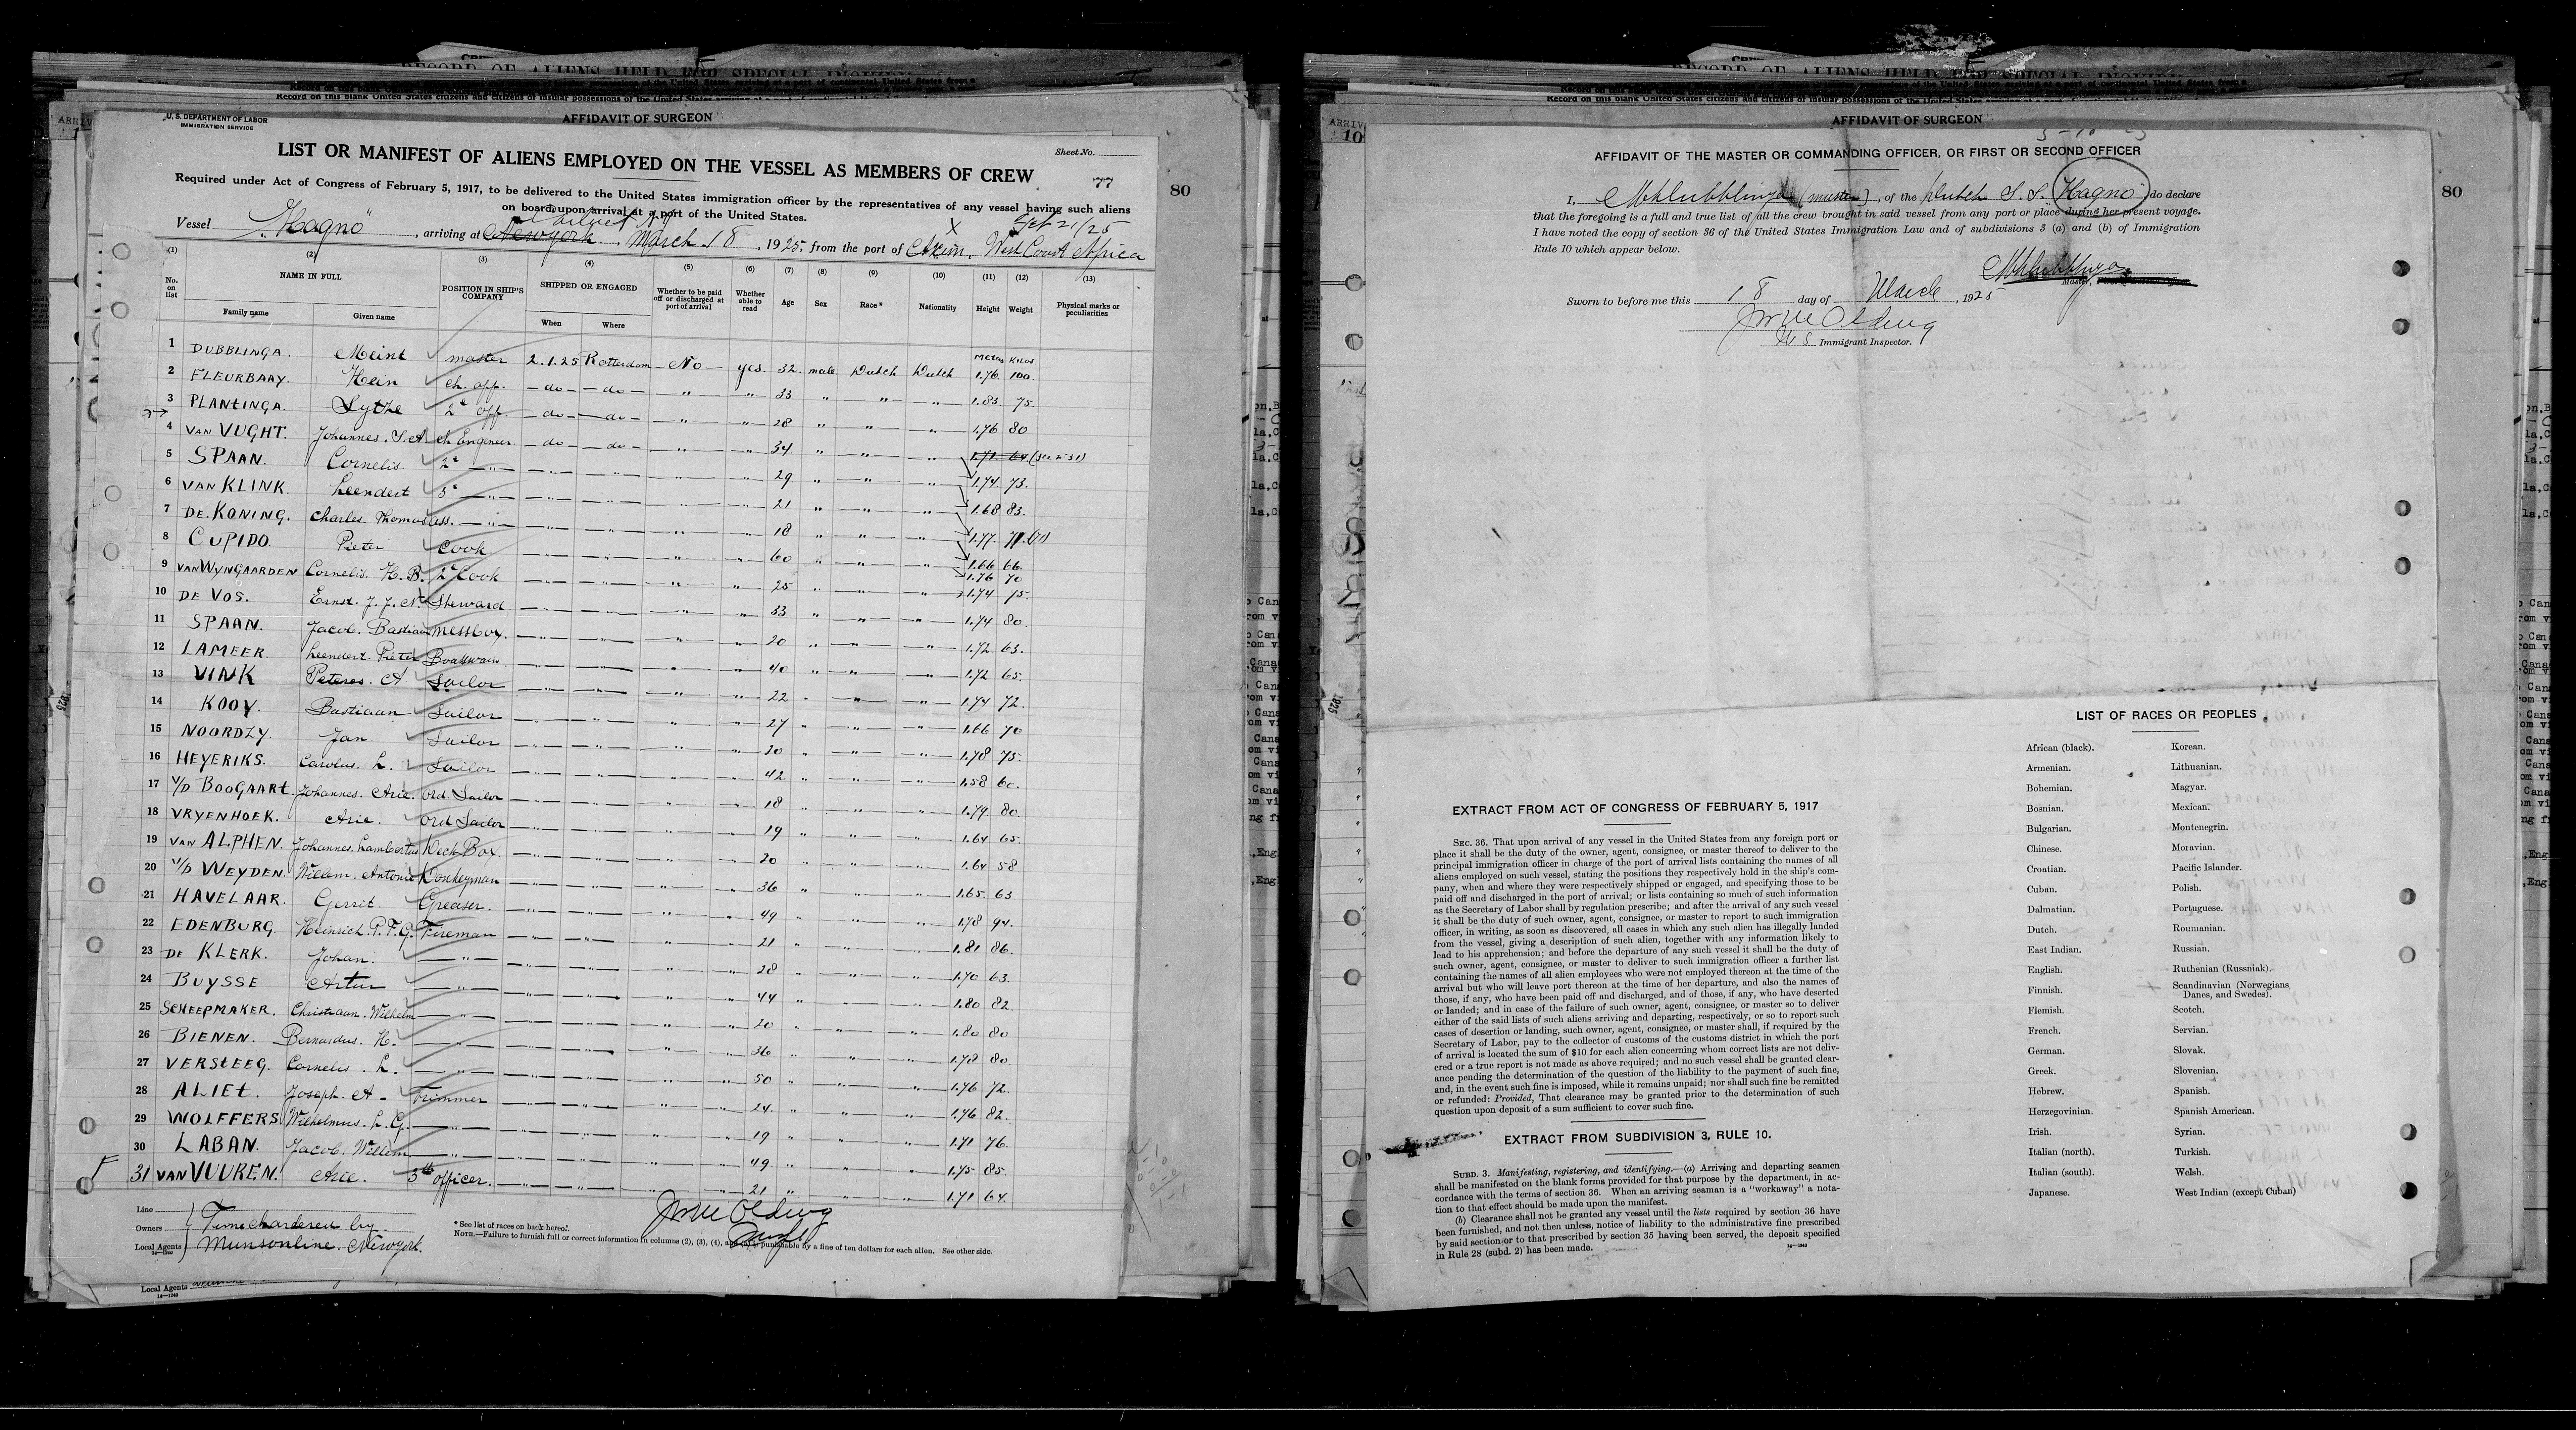 RECORD OF ALIENS HELD FOR SPECIAL INQUIRY
Record on this blank United States citizens and citizens of insular possessions of the United States arriving at a port of continental United States from a
AFFIDAVIT OF SURGEON
U. S. DEPARTMENT OF LABOR
IMMIGRATION SERVICE
Sheet No.
LIST OR MANIFEST OF ALIENS EMPLOYED ON THE VESSEL AS MEMBERS OF CREW
77
80
Required under Act of Congress of February 5, 1917, to be delivered to the United States immigration officer by the representatives of any vessel having such aliens
on board upon arrival at a port of the United States.
Vessel "Hagno", arriving at Newyork, March 18, 1925, from the port of Axim. West Coast Africa
(1) (2) (3) (4) (5) (6) (7) (8) (9) (10) (11) (12) (13)
No. on list NAME IN FULL POSITION IN SHIP'S COMPANY SHIPPED OR ENGAGED Whether to be paid off or discharged at port of arrival Whether able to read Age Sex Race* Nationality Height Weight Physical marks or peculiarities
Family name Given name When Where
1 DUBBLINGA. Meint master 2.1.25 Rotterdam No yes. 32. male Dutch Dutch 1.76 100
2 FLEURBAAY. Hein ch. off. - do - - do - " " 33 " " " 1.83 75.
3 PLANTINGA. Sytze 2e off. - do - - do - " " 28 " " " 1.76 80
4 VAN VUGHT. Johannes. S.A. ch Engineer - do - - do - " " 34. " " " 1.71 64 (see No 31)
5 SPAAN. Cornelis. 2e " " " " " 29 " " " 1.74 73.
6 VAN KLINK. Leendert 3e " " " " " 21 " " " 1.68 83.
7 DE KONING. Charles. Thomas ass. " " " " " 18 " " " 1.77. 71.
8 CUPIDO Pieter Cook. " " " " 60 " " " 1.66 66.
1.76 70
9 VAN WYNGAARDEN Cornelis. H. B. 2e Cook " " " " 25 " " " 1.74 75.
10 DE VOS. Ernst. J. J. A. Steward " " " " 33 " " " 1.74 80.
11 SPAAN. Jacob. Bastiaan messboy. " " " " 20 " " " 1.72 63.
12 LAMEER. Leendert. Pieter Boatswain " " " " 40 " " " 1.72 65.
13 VINK Peterus. A Sailor " " " " 22 " " " 1.74 72.
14 KOOY. Bastiaan Sailor " " " " 27 " " " 1.66 70
15 NOORDZY. Jan Sailor " " " " 20 " " " 1.78 75.
16 HEYERIKS. Carolus. L. Sailor " " " " 42 " " " 1.58 60.
17 V/D BOOGAART. Johannes. Arie. ord Sailor " " " " 18 " " " 1.79. 80.
18 VRYENHOEK. Arie. ord Sailor " " " " 19 " " " 1.64 65.
19 VAN ALPHEN. Johannes. Lambertus Deck Boy. " " " " 20 " " " 1.64 58
20 V/D WEYDEN. Willem. Antonie Donkeyman " " " " 36 " " " 1.65. 63
21 HAVELAAR. Gerrit. Greaser. " " " " 49 " " " 1.78 94.
22 EDENBURG. Heinrich. P. F. G. Fireman " " " " 21 " " " 1.81 86.
23 DE KLERK. Johan. " " " " " 28 " " " 1.70 63.
24 BUYSSE Artur " " " " " 44 " " " 1.80 82.
25 SCHEEPMAKER. Christiaan. Wilhelm " " " " " 20 " " " 1.80 80
26 BIENEN. Bernardus. H. " " " " " 36 " " " 1.78 80.
27 VERSTEEG. Cornelis. L. " " " " " 50 " " " 1.76 72.
28 ALIET. Joseph. A - Trimmer " " " " 24. " " " 1.76 82.
29 WOLFFERS. Wilhelmus. L. G. " " " " " 19 " " " 1.71 76.
30 LABAN. Jacob. Willem " " " " " 49. " " " 1.75 85.
31 VAN VUUREN. Arie. 3th officer. " " " " 21 " " " 1.71 64.
Line
Owners Timechartered by.
Local Agents Munsonline. Newyork.
*See list of races on back hereof.
NOTE.—Failure to furnish full or correct information in columns (2), (3), (4), and (5) is punishable by a fine of ten dollars for each alien. See other side.
Local Agents
14—1240
RECORD OF ALIENS HELD FOR SPECIAL INQUIRY
Record on this blank United States citizens and citizens of insular possessions of the United States arriving at a port of continental United States from a
AFFIDAVIT OF SURGEON
80
AFFIDAVIT OF THE MASTER OR COMMANDING OFFICER, OR FIRST OR SECOND OFFICER
I, (master), of the Dutch S. S. "Hagno" do declare
that the foregoing is a full and true list of all the crew brought in said vessel from any port or place during her present voyage.
I have noted the copy of section 36 of the United States Immigration Law and of subdivisions 3 (a) and (b) of Immigration
Rule 10 which appear below.
Master,
Sworn to before me this 18 day of March, 1925
U S Immigrant Inspector.
EXTRACT FROM ACT OF CONGRESS OF FEBRUARY 5, 1917
SEC. 36. That upon arrival of any vessel in the United States from any foreign port or
place it shall be the duty of the owner, agent, consignee, or master thereof to deliver to the
principal immigration officer in charge of the port of arrival lists containing the names of all
aliens employed on such vessel, stating the positions they respectively hold in the ship's com-
pany, when and where they were respectively shipped or engaged, and specifying those to be
paid off and discharged in the port of arrival; or lists containing so much of such information
as the Secretary of Labor shall by regulation prescribe; and after the arrival of any such vessel
it shall be the duty of such owner, agent, consignee, or master to report to such immigration
officer, in writing, as soon as discovered, all cases in which any such alien has illegally landed
from the vessel, giving a description of such alien, together with any information likely to
lead to his apprehension; and before the departure of any such vessel it shall be the duty of
such owner, agent, consignee, or master to deliver to such immigration officer a further list
containing the names of all alien employees who were not employed thereon at the time of the
arrival but who will leave port thereon at the time of her departure, and also the names of
those, if any, who have been paid off and discharged, and of those, if any, who have deserted
or landed; and in case of the failure of such owner, agent, consignee, or master so to deliver
either of the said lists of such aliens arriving and departing, respectively, or so to report such
cases of desertion or landing, such owner, agent, consignee, or master shall, if required by the
Secretary of Labor, pay to the collector of customs of the customs district in which the port
of arrival is located the sum of $10 for each alien concerning whom correct lists are not deliv-
ered or a true report is not made as above required; and no such vessel shall be granted clear-
ance pending the determination of the question of the liability to the payment of such fine,
and, in the event such fine is imposed, while it remains unpaid; nor shall such fine be remitted
or refunded: Provided, That clearance may be granted prior to the determination of such
question upon deposit of a sum sufficient to cover such fine.
EXTRACT FROM SUBDIVISION 3, RULE 10.
SUBD. 3. Manifesting, registering, and identifying.—(a) Arriving and departing seamen
shall be manifested on the blank forms provided for that purpose by the department, in ac-
cordance with the terms of section 36. When an arriving seaman is a "workaway" a nota-
tion to that effect should be made upon the manifest.
(b) Clearance shall not be granted any vessel until the lists required by section 36 have
been furnished, and not then unless, notice of liability to the administrative fine prescribed
by said section or to that prescribed by section 35 having been served, the deposit specified
in Rule 28 (subd. 2) has been made.
14—1240
LIST OF RACES OR PEOPLES
African (black). Korean.
Armenian. Lithuanian.
Bohemian. Magyar.
Bosnian. Mexican.
Bulgarian. Montenegrin.
Chinese. Moravian.
Croatian. Pacific Islander.
Cuban. Polish.
Dalmatian. Portuguese.
Dutch. Roumanian.
East Indian. Russian.
English. Ruthenian (Russniak).
Finnish. Scandinavian (Norwegians, Danes, and Swedes).
Flemish. Scotch.
French. Servian.
German. Slovak.
Greek. Slovenian.
Hebrew. Spanish.
Herzegovinian. Spanish American.
Irish. Syrian.
Italian (north). Turkish.
Italian (south). Welsh.
Japanese. West Indian (except Cuban)